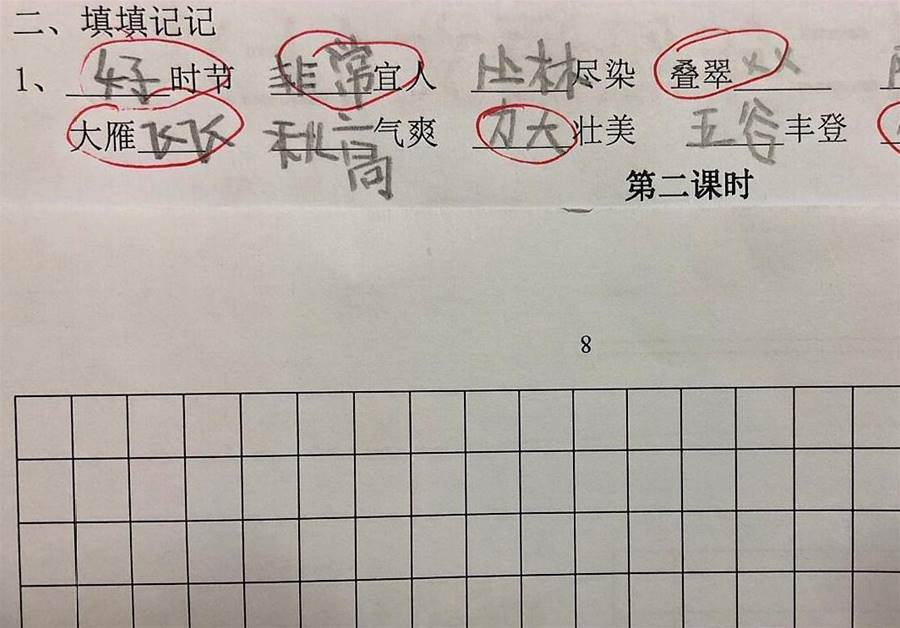 二、填填记记
1、好子时节 非常宜人 丛林尽染 叠翠××
大雁飞飞 秋高气爽 力大壮美 五谷丰登
第二课时
8